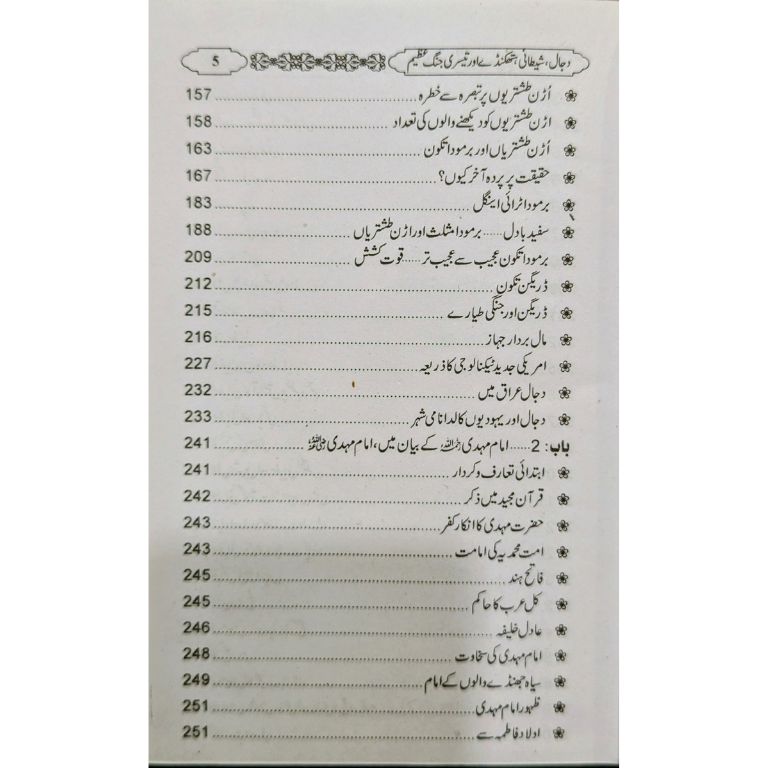 دجال، شیطانی ہتھکنڈے اور تیسری جنگ عظیم 5
اُڑن طشتریوں پر تبصرہ سے خطرہ 157
اڑن طشتریوں کو دیکھنے والوں کی تعداد 158
اُڑن طشتریاں اور برمودا تکون 163
حقیقت پر پردہ آخر کیوں؟ 167
برمودا ٹرائی اینگل 183
سفید بادل ...... برمودا مثلث اور اڑن طشتریاں 188
برمودا تکون عجیب سے عجیب تر ...... قوت کشش 209
ڈریگن تکون 212
ڈریگن اور جنگی طیارے 215
مال بردار جہاز 216
امریکی جدید ٹیکنالوجی کا ذریعہ 227
دجال عراق میں 232
دجال اور یہودیوں کا لدا نامی شہر 233
باب: 2 ...... امام مہدی کے بیان میں، امام مہدی 241
ابتدائی تعارف و کردار 241
قرآن مجید میں ذکر 242
حضرت مہدی کا انکار کفر 243
امت محمدیہ کی امامت 243
فاتح ہند 245
کل عرب کا حاکم 245
عادل خلیفہ 246
امام مہدی کی سخاوت 248
سیاہ جھنڈے والوں کے امام 249
ظہور امام مہدی 251
اولاد فاطمہ سے 251